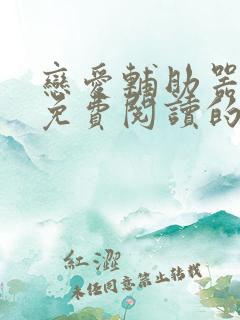 戀愛輔助器
免費閱讀的
紅澀
未经同意禁止转载